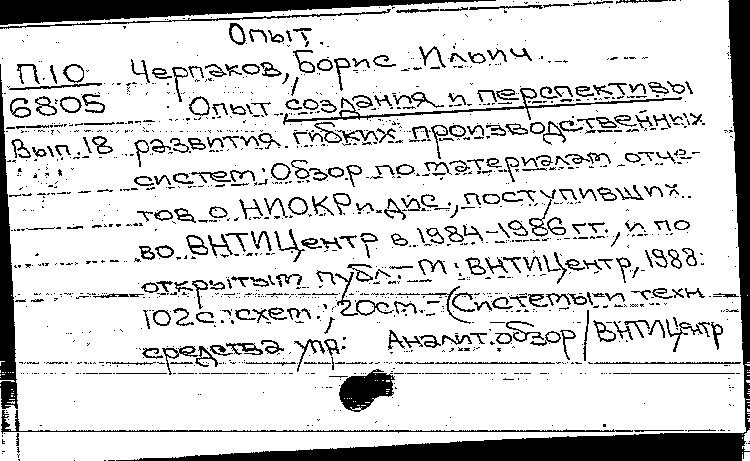 Опыт.
П.10 Черпаков, Борис Ильич.
6805 Опыт создания и перспективы
Вып.18 развития гибких производственных
систем: Обзор по материалам отче-
тов о НИОКР и дис., поступивших
во ВНТИЦентр в 1984-1986 гг., и по
открытым публ.- М.: ВНТИЦентр, 1988.
102с.: схем.; 20см.- (Системы и техн.
средства упр.: Аналит. обзор / ВНТИЦентр